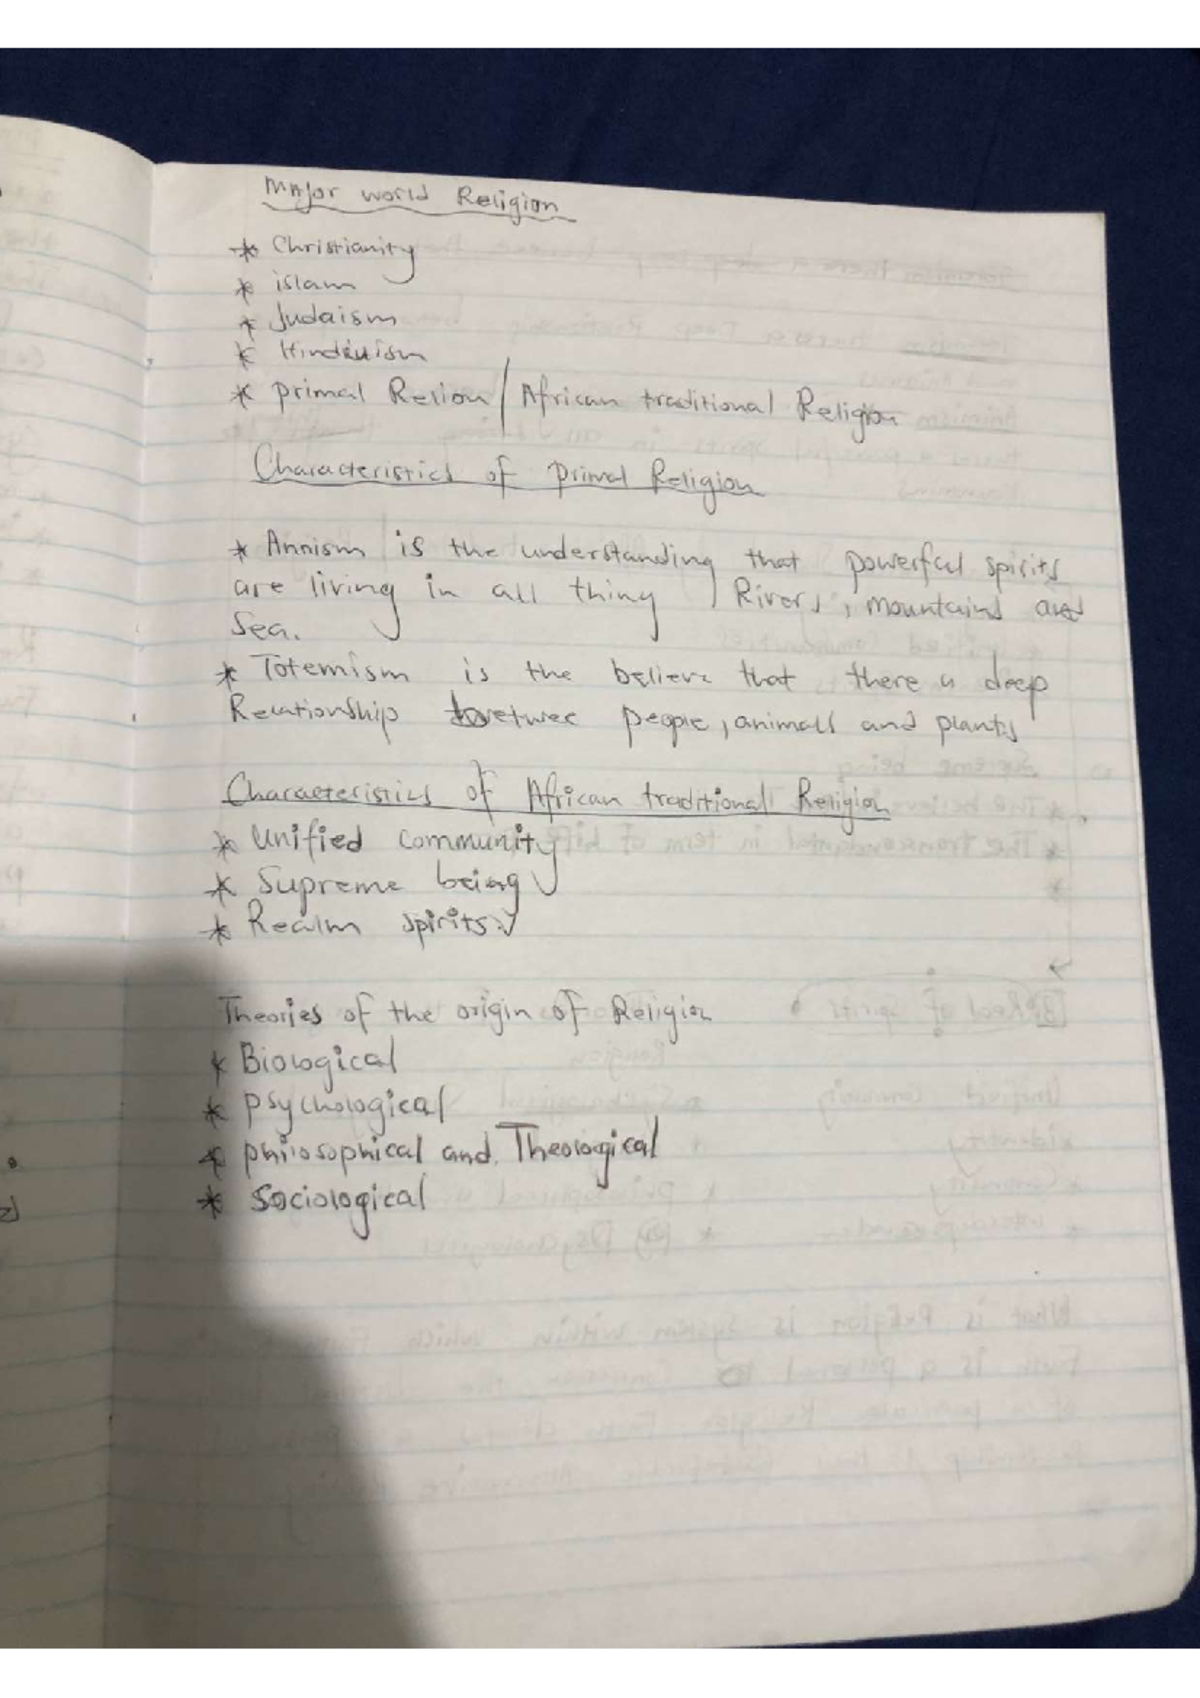 Major world Religion
* Christianity
* islam
* Judaism
* Hinduism
* primal Relion / African traditional Religion
Characteristics of primal Religion
* Annism is the understanding that powerful spirits
are living in all thing, Rivers, mountains and
Sea.
* Totemism is the believe that there is deep
Relationship betwee people, animals and plants
Characteristics of African traditional Religion
* Unified community
* Supreme being
* Realm spirits
Theories of the origin of Religion
* Biological
* psychological
* philosophical and Theological
* Sociological